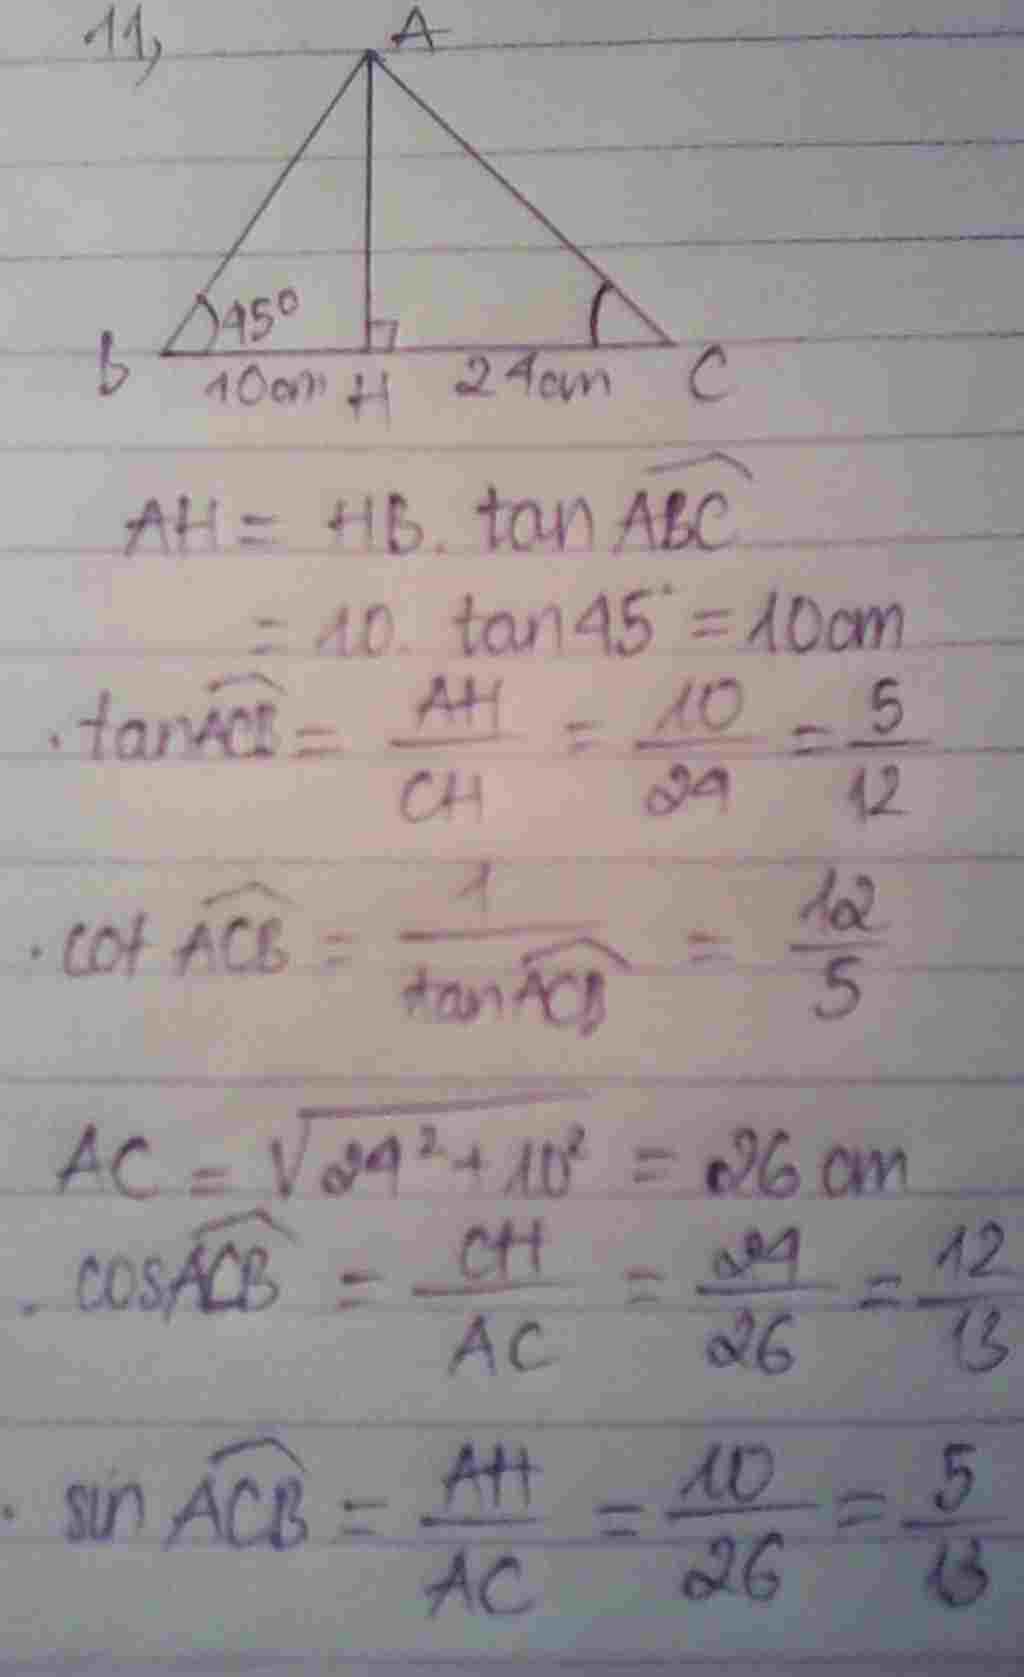 11,
A
45°
B
10cm H 24cm C
AH = HB. tan \widehat{ABC}
= 10. tan 45° = 10cm
. tan \widehat{ACB} = \frac{AH}{CH} = \frac{10}{24} = \frac{5}{12}
. cot \widehat{ACB} = \frac{1}{tan \widehat{ACB}} = \frac{12}{5}
AC = \sqrt{24^2 + 10^2} = 26 cm
. cos \widehat{ACB} = \frac{CH}{AC} = \frac{24}{26} = \frac{12}{13}
. sin \widehat{ACB} = \frac{AH}{AC} = \frac{10}{26} = \frac{5}{13}